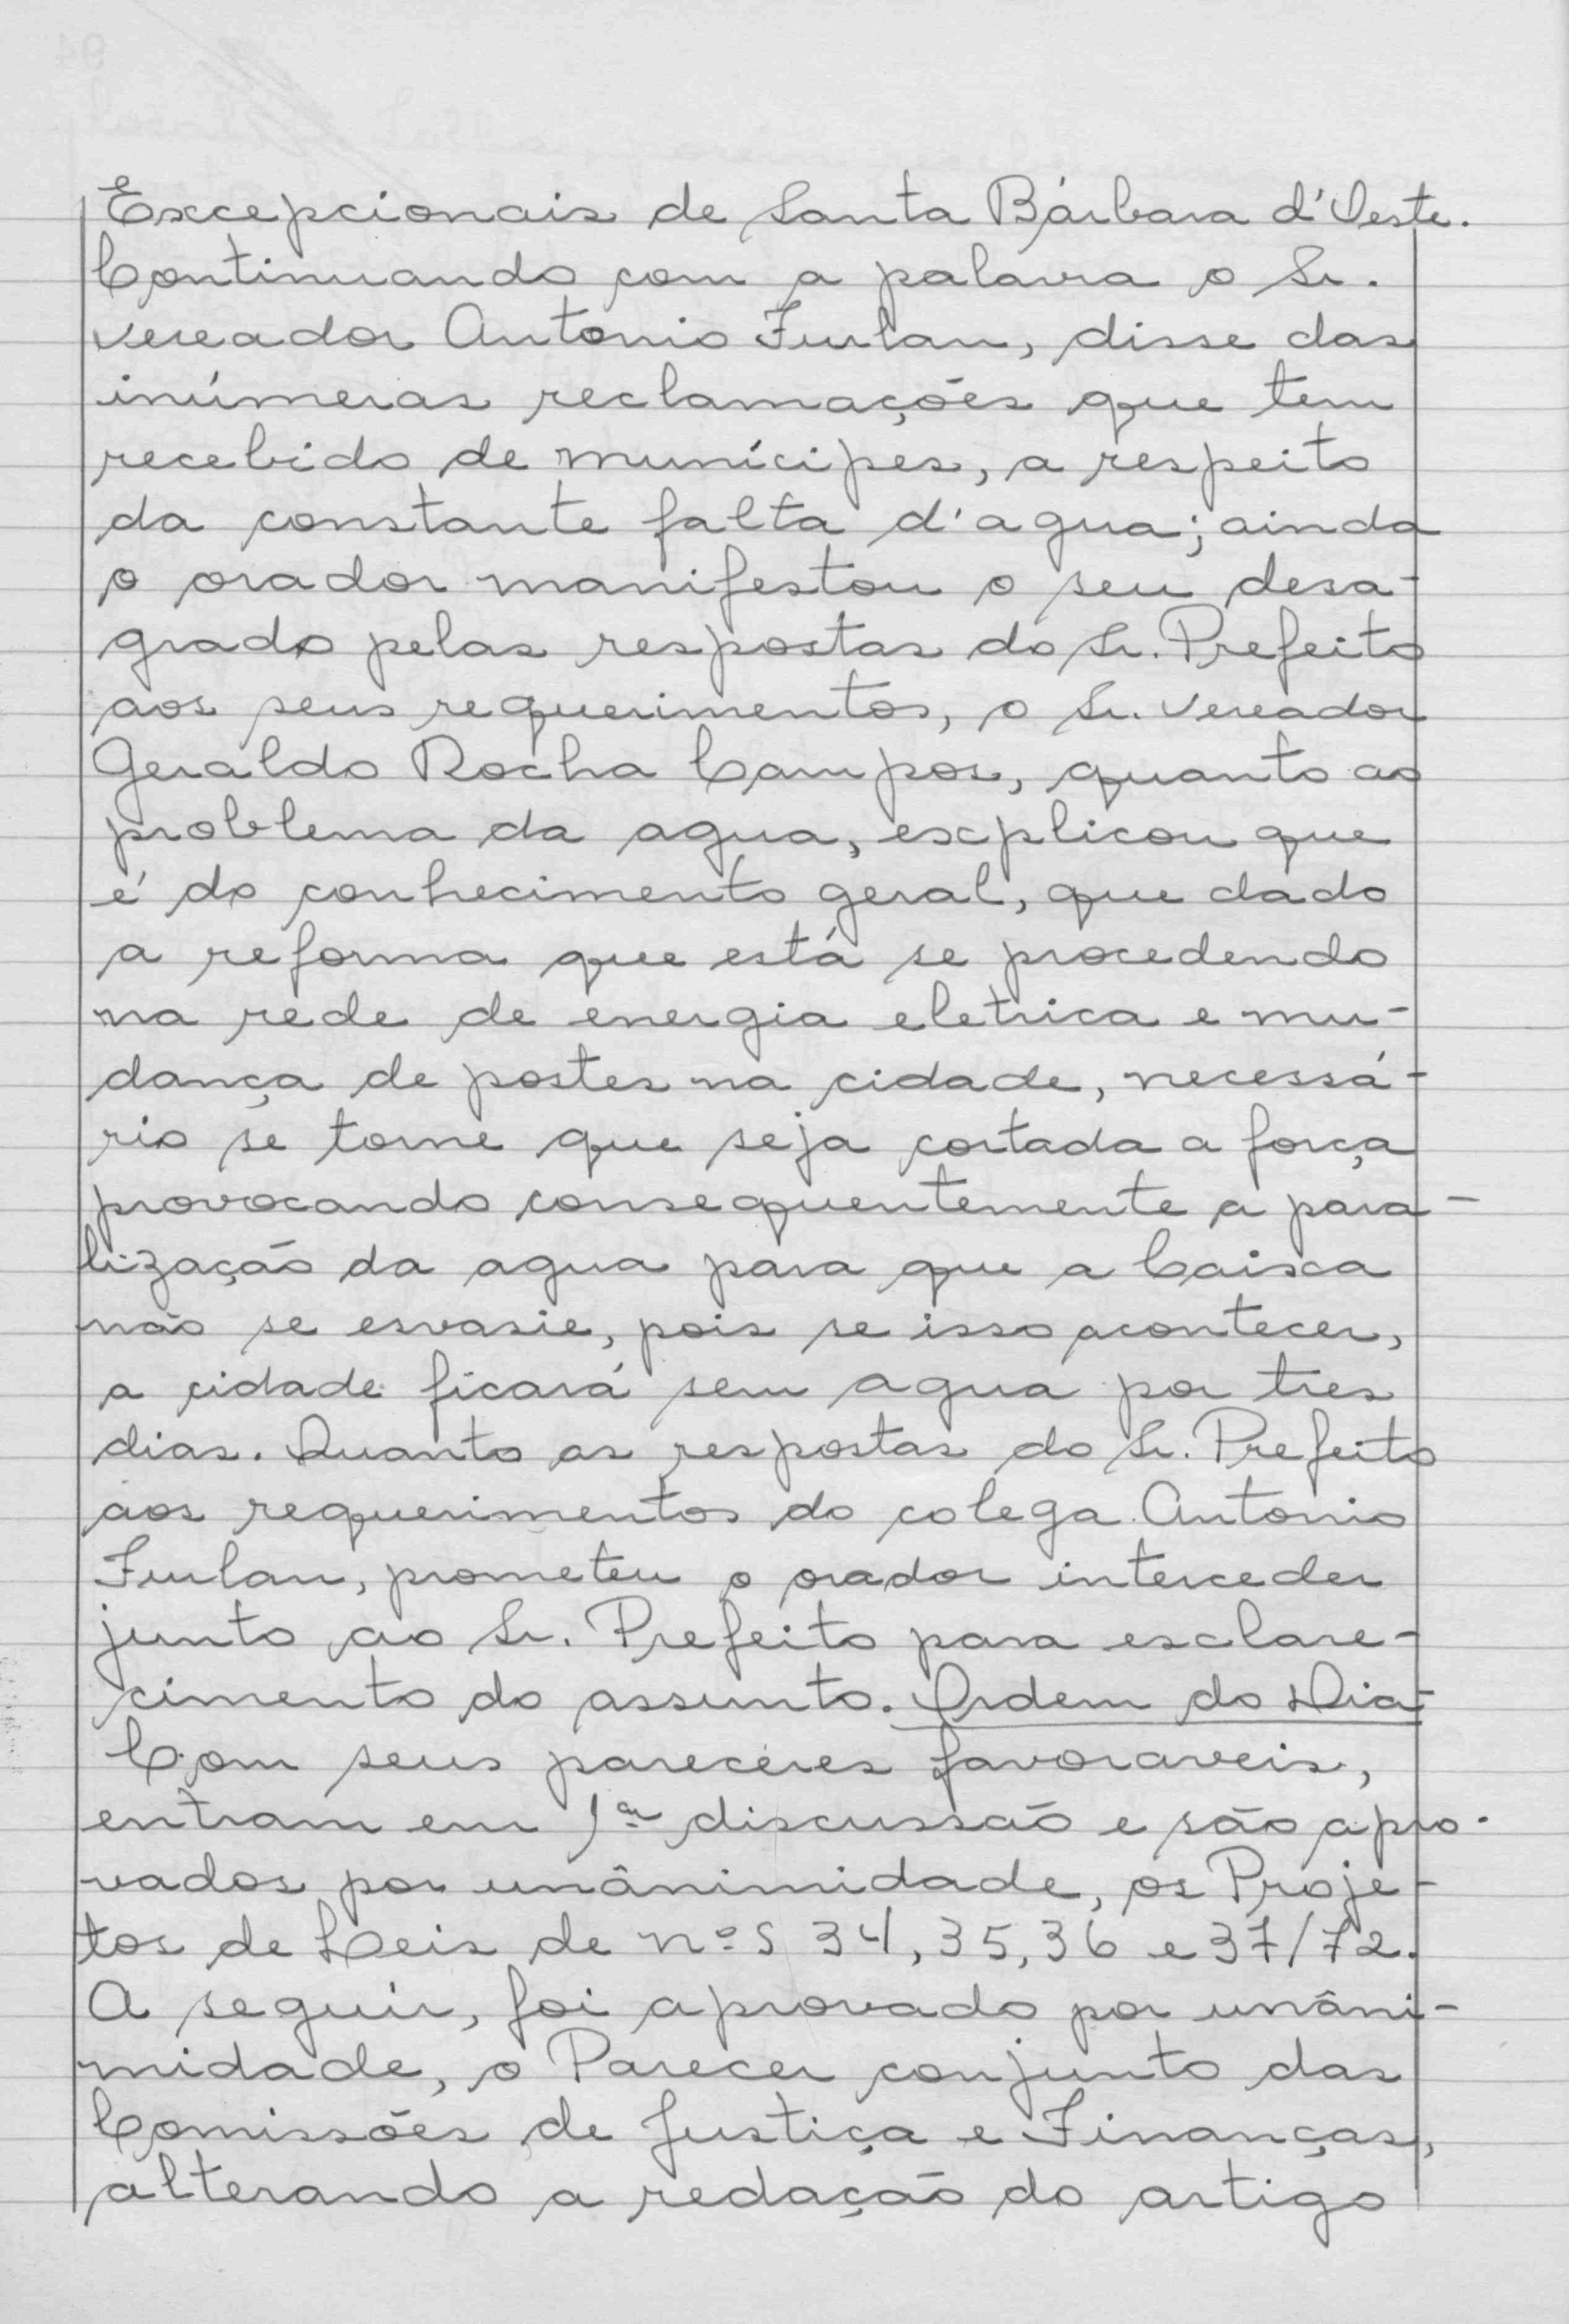 Excepcionais de Santa Bárbara d'Oeste.
Continuando com a palavra o Sr.
vereador Antonio Furlan, disse das
inúmeras reclamações que tem
recebido de munícipes, a respeito
da constante falta d'agua; ainda
o orador manifestou o seu desa-
grado pelas respostas do Sr. Prefeito
aos seus requerimentos, o Sr. vereador
Geraldo Rocha Campos, quanto ao
problema da agua, explicou que
é do conhecimento geral, que dado
a reforma que está se procedendo
na rede de energia eletrica e mu-
dança de postes na cidade, necessá-
rio se torne que seja cortada a força
provocando consequentemente a para-
lização da agua para que a Caixa
não se esvasie, pois se isso acontecer,
a cidade ficará sem agua por tres
dias. Quanto as respostas do Sr. Prefeito
aos requerimentos do colega Antonio
Furlan, prometeu o orador interceder
junto ao Sr. Prefeito para esclare-
cimento do assunto. Ordem do Dia-
Com seus parecêres favoraveis,
entram em 1ª discussão e são apro-
vados por unânimidade, os Proje-
tos de Leis de nºs 34, 35, 36 e 37/72.
A seguir, foi aprovado por unâni-
midade, o Parecer conjunto das
Comissões de Justiça e Finanças,
alterando a redação do artigo